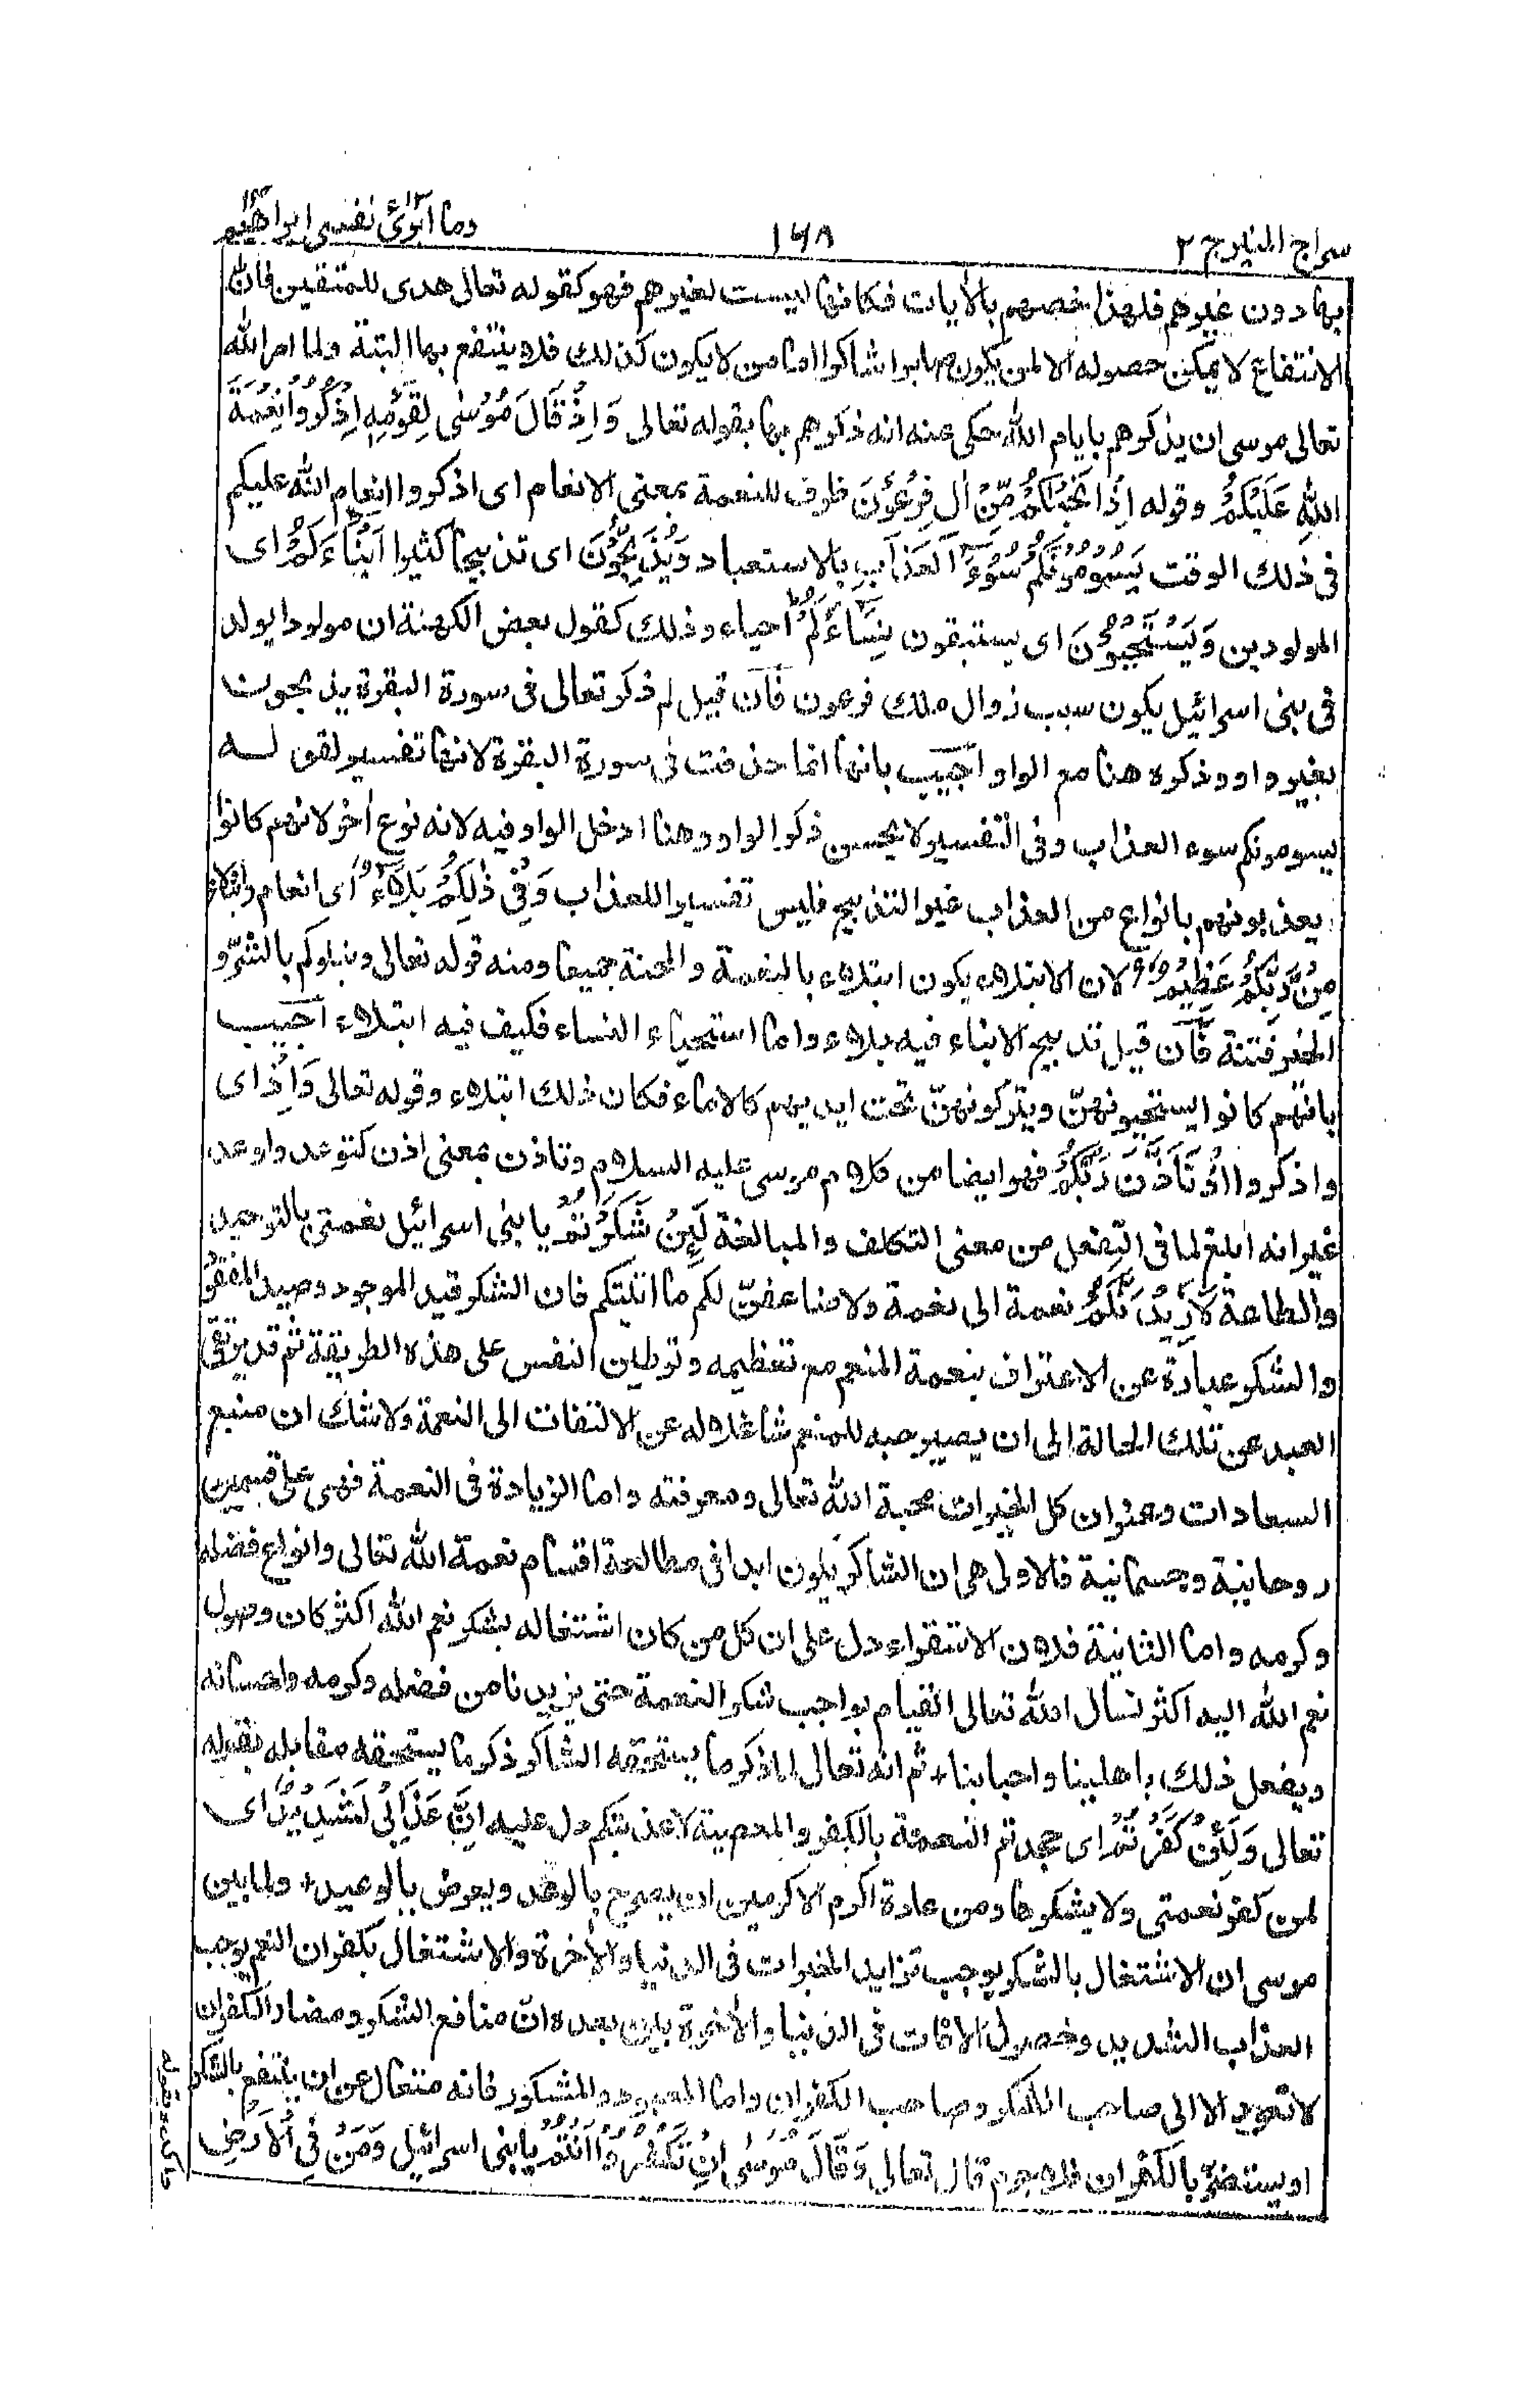 سراج المنير ج ٢
١٦٨
وما ابرئ نفسی ١٣ ابراهيم ١٤
بها دون غيرهم فلهذا خصهم بالأيات فكانها ليست لغيرهم فهو كقوله تعالى هدى للمتقين فان
الانتفاع لا يمكن حصوله الا لمن يكون صابرا شاكرا اما من لا يكون كذلك فلا ينتفع بها البتة ولما امر الله
تعالى موسى ان يذكرهم بايام الله حكى عنه انه ذكرهم بها بقوله تعالى وَاِذْ قَالَ مُوْسٰى لِقَوْمِهِ اذْكُرُوْا نِعْمَةَ
اللهِ عَلَيْكُمْ وقوله اِذْ اَنْجٰىكُمْ مِّنْ اٰلِ فِرْعَوْنَ ظرف للنعمة بمعنى الانعام اى اذكروا انعام الله عليكم
فى ذلك الوقت يَسُوْمُوْنَكُمْ سُوْٓءَ الْعَذَابِ بالاستعباد وَيُذَبِّحُوْنَ اى تذبيحا كثيرا اَبْنَآءَكُمْ اى
المولودين وَيَسْتَحْيُوْنَ اى يستبقون نِسَآءَكُمْ احياء وذلك كقول بعض الكهنة ان مولودا يولد
فى بنى اسرائيل يكون سبب زوال ملك فرعون فان قيل لم ذكر تعالى فى سورة البقرة يذبحون
بغير واو وذكره هنا مع الواو اجيب بانها انما حذفت فى سورة البقرة لانها تفسير لقوله
يسومونكم سوء العذاب وفى التفسير لا يحسن ذكر الواو وهنا ادخل الواو فيه لانه نوع أخر لانهم كانوا
يعذبونهم بانواع من العذاب غير التذبيح فليس تفسيرا للعذاب وَفِيْ ذٰلِكُمْ بَلَآءٌ اى انعام وابتلاء
مِّنْ رَّبِّكُمْ عَظِيْمٌ لان الابتلاء يكون ابتلاء بالنعمة والمحنة جميعا ومنه قوله تعالى ونبلوكم بالشرّ و
الخير فتنة فان قيل تذبيح الابناء فيه بلاء واما استحياء النساء فكيف فيه ابتلاء اجيب
بانهم كانوا يستحيونهنّ ويتركونهنّ تحت ايديهم كالاماء فكان ذلك ابتلاء وقوله تعالى وَاِذْ اى
واذكروا اذ تَاَذَّنَ رَبُّكُمْ فهو ايضا من كلام موسى عليه السلام وتاذن بمعنى اذن كتوعد واوعد
غير انه ابلغ لما فى التفعل من معنى التكلف والمبالغة لَئِنْ شَكَرْتُمْ يا بنى اسرائيل نعمتى بالتوحيد
والطاعة لَاَزِيْدَنَّكُمْ نعمة الى نعمة ولاضاعفنّ لكم ما اتيتكم فان الشكر قيد الموجود وصيد المفقود
والشكر عبارة عن الاعتراف بنعمة المنعم مع تعظيمه وتوطين النفس على هذه الطريقة ثم قد يرتقى
العبد عن تلك الحالة الى ان يصير حبه للمنعم شاغلا له عن الالتفات الى النعمة ولا شك ان منبع
السعادات وعنوان كل الخيرات محبة الله تعالى ومعرفته واما الزيادة فى النعمة فهى على قسمين
روحانية وجسمانية فالاولى هى ان الشاكر يكون ابدا فى مطالعة اقسام نعمة الله تعالى وانواع فضله
وكرمه واما الثانية فلان الاستقراء دل على ان كل من كان اشتغاله بشكر نعم الله اكثر كان وصول
نعم الله اليه اكثر نسال الله تعالى القيام بواجب شكر النعمة حتى يزيدنا من فضله وكرمه واحسانه
ويفعل ذلك باهلينا واحبابنا ثم انه تعالى لما ذكر ما يستحقه الشاكر ذكر ما يستحقه مقابله بقوله
تعالى وَلَئِنْ كَفَرْتُمْ اى جحدتم النعمة بالكفر والمعصية لاعذبنكم دل عليه اِنَّ عَذَابِيْ لَشَدِيْدٌ اى
لمن كفر نعمتى ولا يشكرها ومن عادة اكرم الاكرمين ان يصرح بالوعد ويعرض بالوعيد ولما بين
موسى ان الاشتغال بالشكر يوجب تزايد الخيرات فى الدنيا والأخرة والاشتغال بكفران النعم يوجب
العذاب الشديد وحصول الافات فى الدنيا والأخرة بين بعده انّ منافع الشكر ومضار الكفران
لا تعود الا الى صاحب الشكر وصاحب الكفران واما المعبود والمشكور فانه متعال عن ان ينتفع بالشكر
او يستضرّ بالكفران فلا جرم قال تعالى وَقَالَ مُوْسٰى اِنْ تَكْفُرُوْا اَنْتُمْ يا بنى اسرائيل وَمَنْ فِى الْاَرْضِ